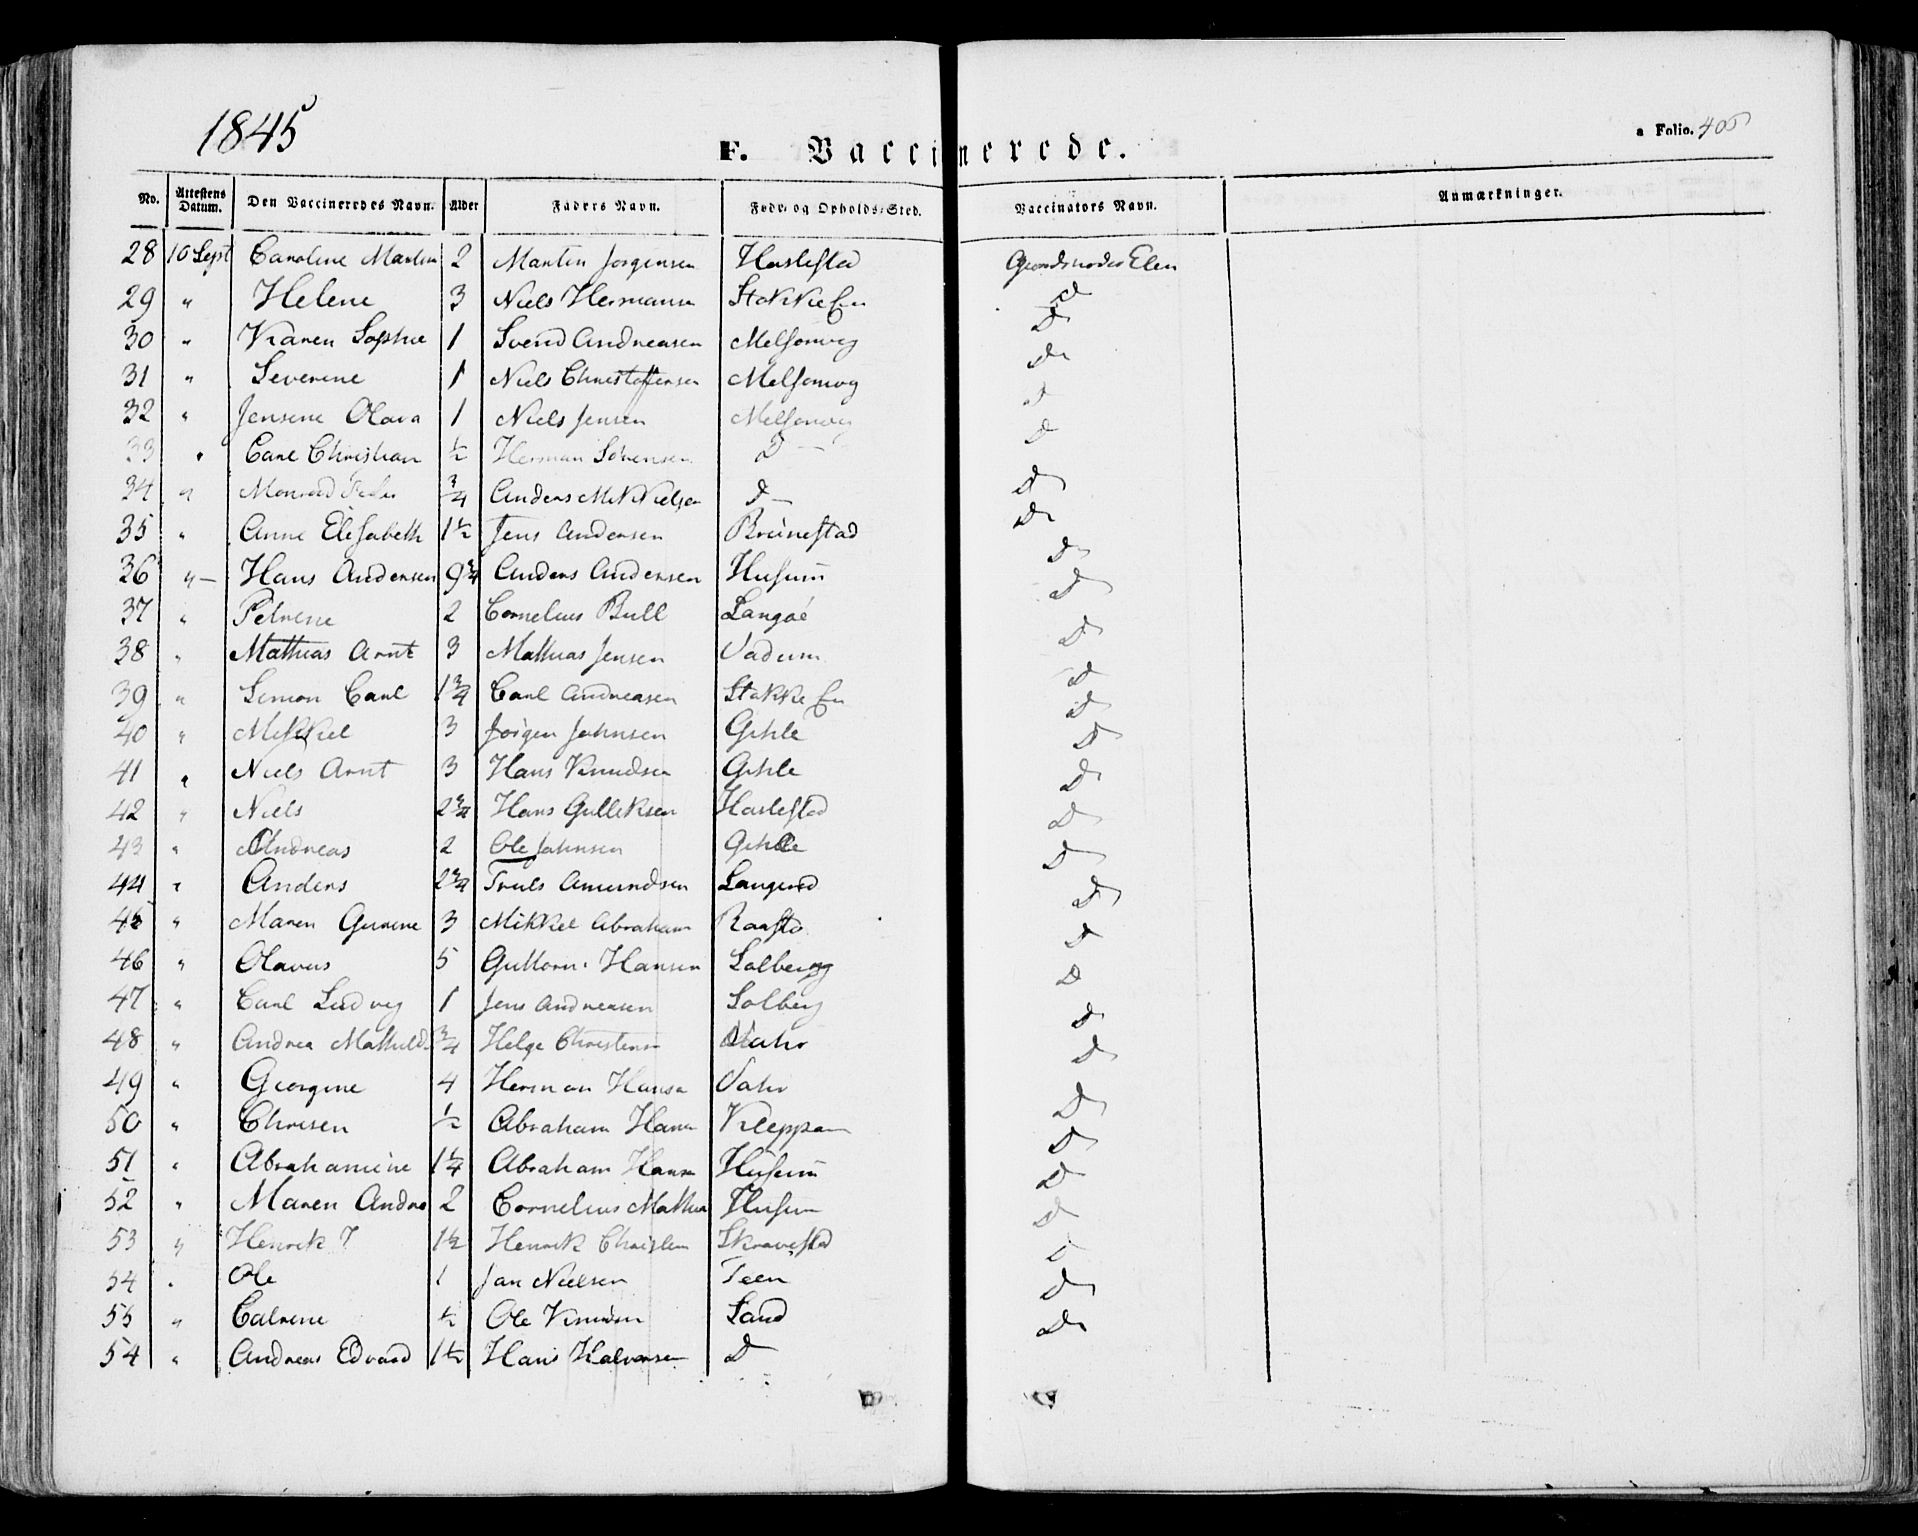 1845
F. Vaccinerede.
a Folio. 405
No. Attestens Datum. Den Vaccineredes Navn. Alder Faders Navn. Føde- og Opholds-Sted. Vaccinators Navn. Anmærkninger.
28 10 Sept Caroline Martin 2 Martin Jorgensen Haslestad
29 " Helene 3 Niels Hermansn Stokke D
30 " Karen Sophie 1 Svend Andreasen Melsomvig D
31 " Severine 1 Niels Christoffersen Melsomvig D
32 " Jensine Olava 1 Niels Jensen Melsomvig D
33 " Carl Christian ½ Herman Sörensen D — D
34 " Peder ¾ Anders Mikkielsen D — D
35 " Anne Elisabeth 1½ Jens Andersen Brunestad D
36 " — Hans Andersen 9¾ Anders Andersen Husum D
37 " Petrene 2 Cornelius Bull Langoé D
38 " Mathias Arnt 3 Mathias Jensen Vadum D
39 " Simon Carl 1¾ Carl Andreasen Stokke D
40 " Mikkel 3 Jörgen Johnsen Gihle D
41 " Niels Arnt 3 Hans Knudsen Gihle D
42 " Niels 2¾ Hans Gulliksen Haslestad D
43 " Andreas 2 Ole Johnsen Gihle D
44 " Anders 2¾ Truls Amundsen Langerd D
45 " Maren Gurine 3 Mikkel Abraham Raasta D
46 " Olavus 5 Guttorm Hansen Solberg D
47 " Carl Ludvig 1 Jens Andreasen Solberg D
48 " Andrea Mathild ¾ Helge Christensn D
49 " Georgine 4 Herman Hansn D
50 " Chrisen ½ Abraham Hansn Kleppan D
51 " Abrahamine 1¼ Abraham Hansn Husum D
52 " Maren Andrea 2 Cornelius Mathias Husum D
53 " Henrik J 1½ Henrik Christen Skravestad D
54 " Ole 1 Jan Nielsen Teen D
55 " Catrine ½ Ole Knudsn Sand D
54 " Andreas Edvard 1½ Hans Halvorsen D D